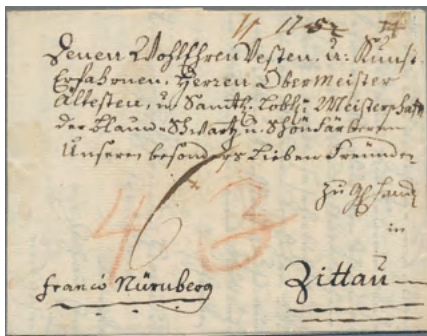 1752
Denen WohlEhrenVesten, u: Kunst
Erfahrnen, Herren Obermeister
Ältesten, u. Sämtl: Löbl: Meisterschafft
der Blau- Schwartz u. Schönfärberen
Unseren besonders Lieben Freünden
zu
in
463
franco Nürnberg
Zittau